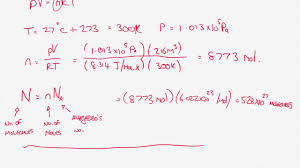 pV = nRT
T = 27°C + 273 = 300K P = 1.013x10⁵Pa
n = pV/RT = (1.013x10⁵Pa)(216m³)/(8.314 J/molK)(300K) = 8773 mol.
N = nNA = (8773 mol)(6.022x10²³/mol) = 5.28x10²⁷ molecules
No. of molecules No. of moles Avagadro's no.